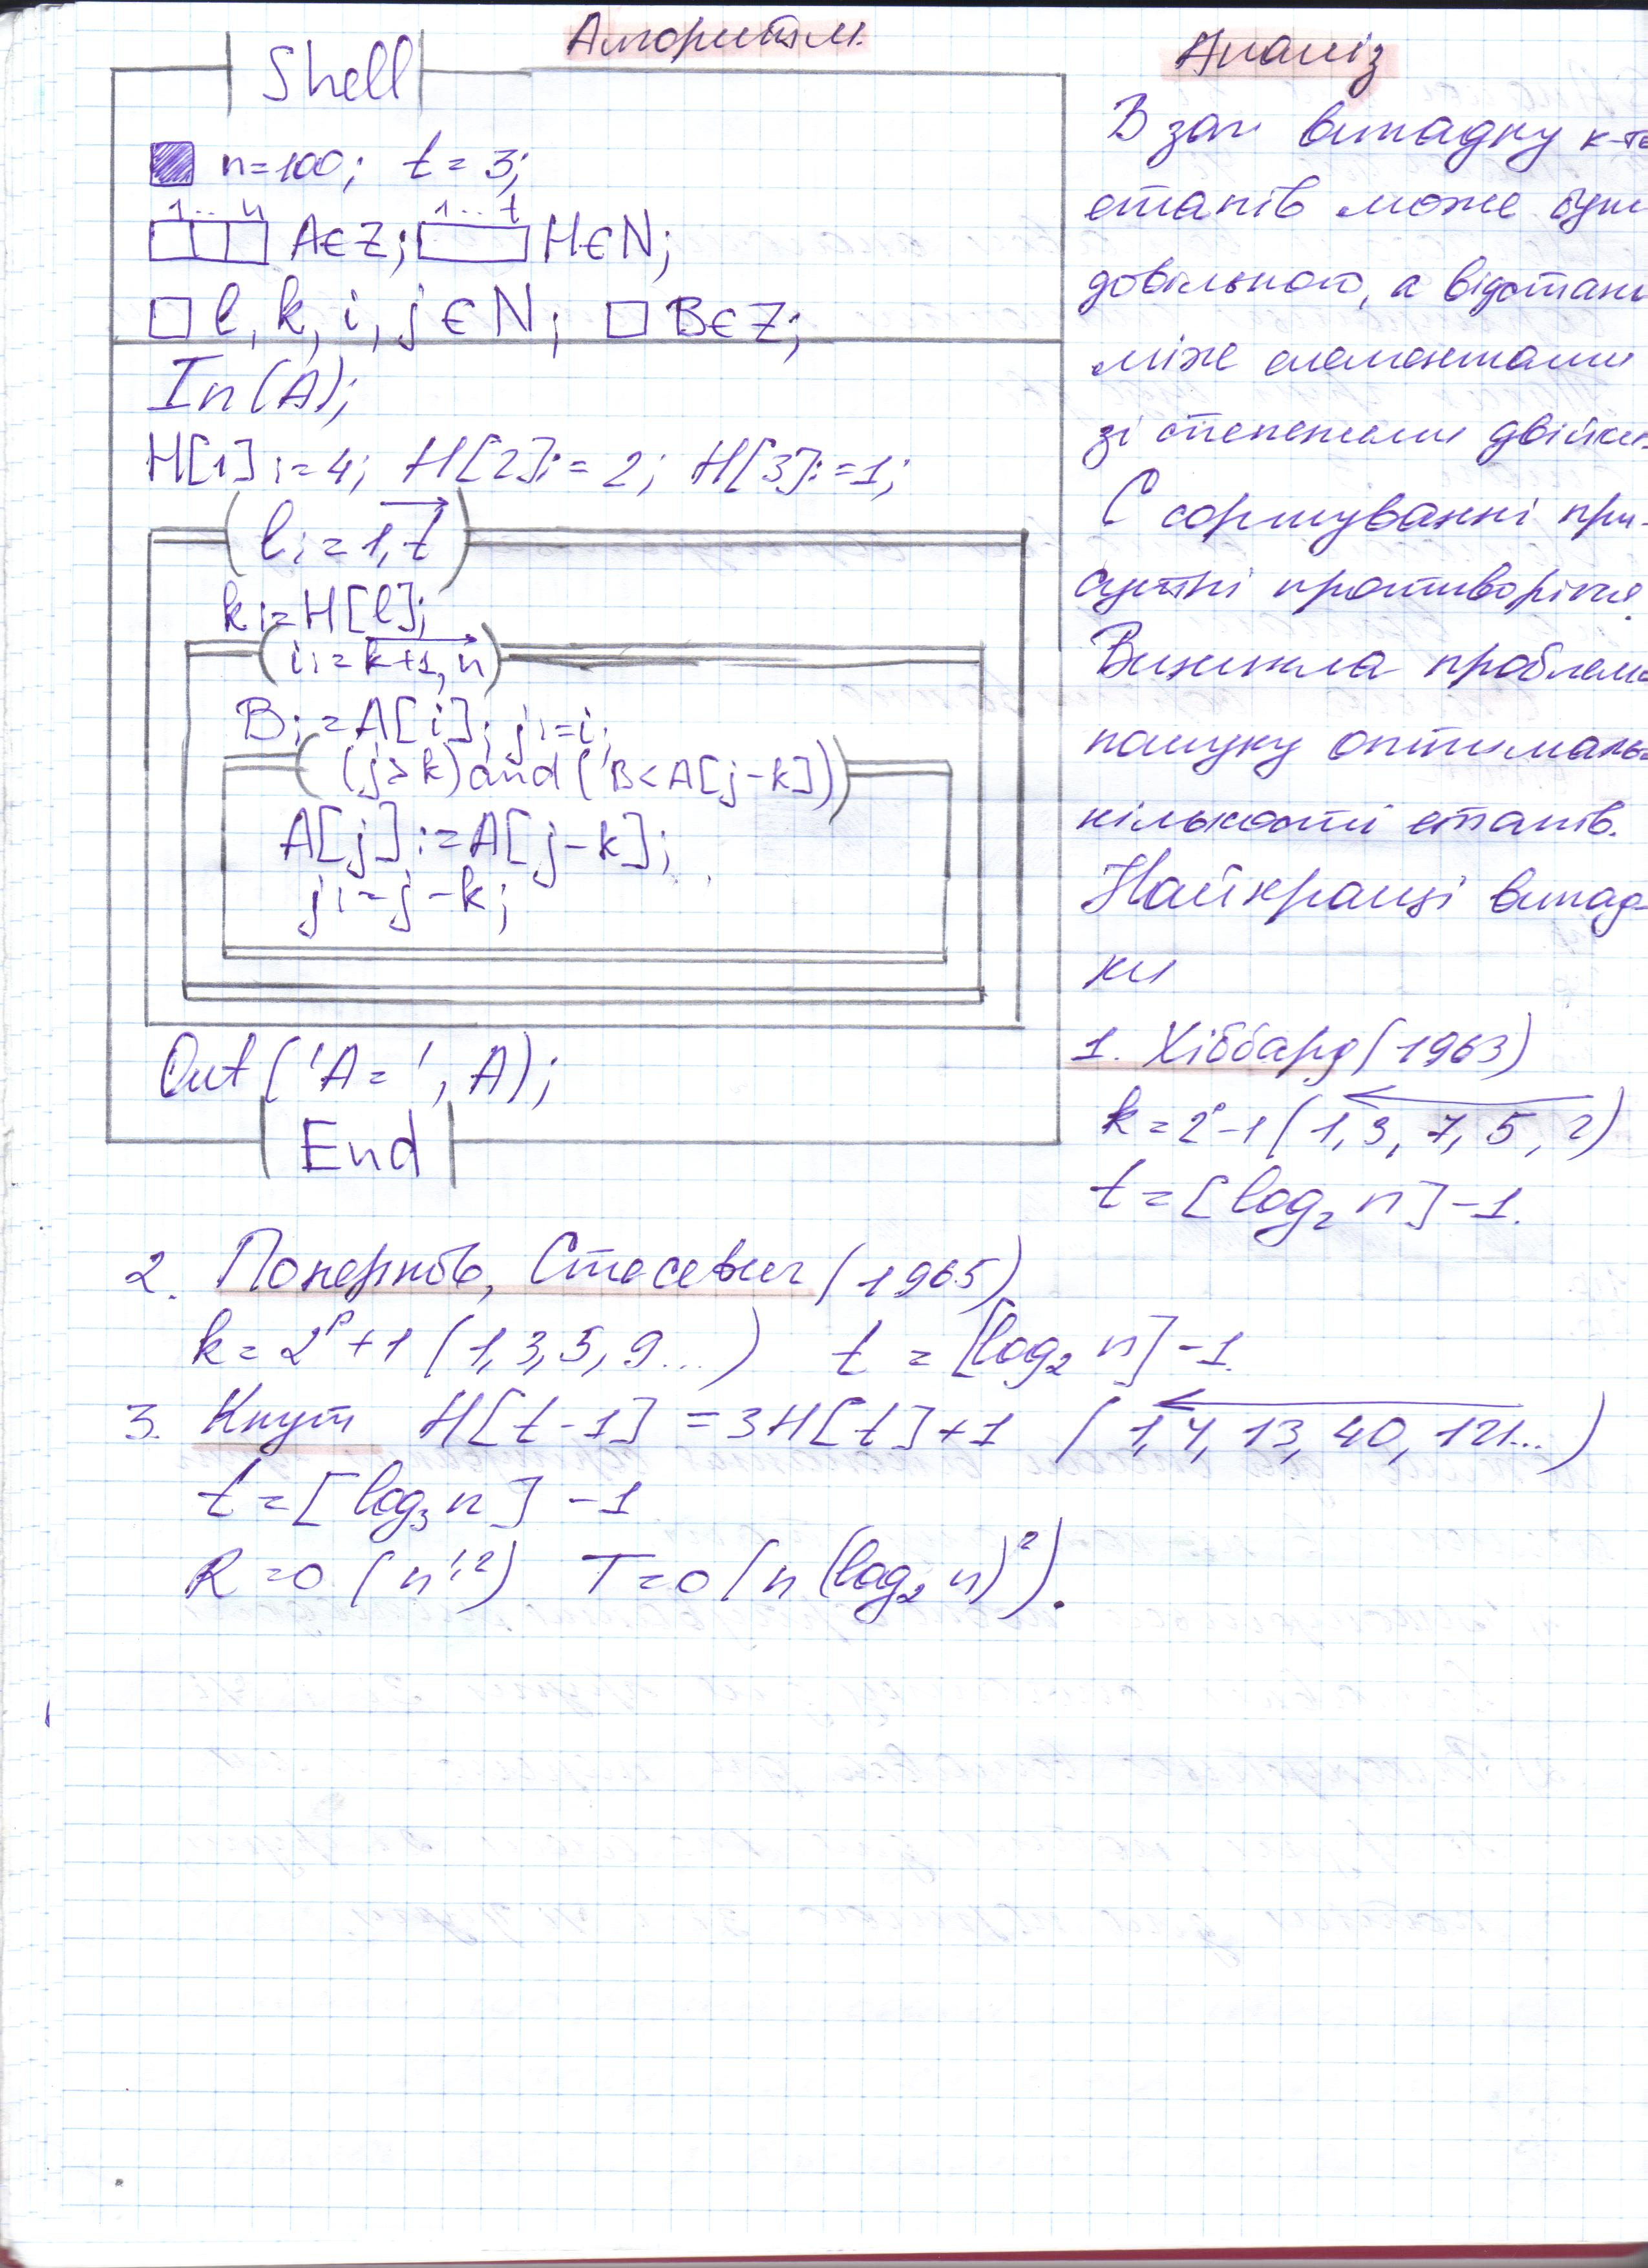 Алгоритм.
Shell
n=100; t=3;
1...n 1...t
A∈Z; H∈N;
l, k, i, j ∈N; B∈Z;
In(A);
H[1]:=4; H[2]:=2; H[3]:=1;
l:=1,t
k:=H[l];
i:=k+1,n
B:=A[i]; j:=i;
(j>k)and(B<A[j-k])
A[j]:=A[j-k];
j:=j-k;
Out('A=', A);
End
Аналіз
В заг. випадку к-ть
етапів може бути
довільною, а відстань
між елементами
зі степенями двійки
С сортуванні при-
сутні противоріччя.
Виникла проблема
пошуку оптимальн
кількості етапів.
Найкращі випад-
ки
1. Хіббард (1963)
k=2ᵖ-1 (1, 3, 7, 5, 2)
t=[log₂ n]-1.
2. Попернов, Стасевич (1965)
k=2ᵖ+1 (1,3,5,9...) t=[log₂ n]-1.
3. Кнут H[t-1]=3H[t]+1 (1,4,13,40,121...)
t=[log₃ n]-1
R=O(n¹·²) T=O(n(log₂ n)²).